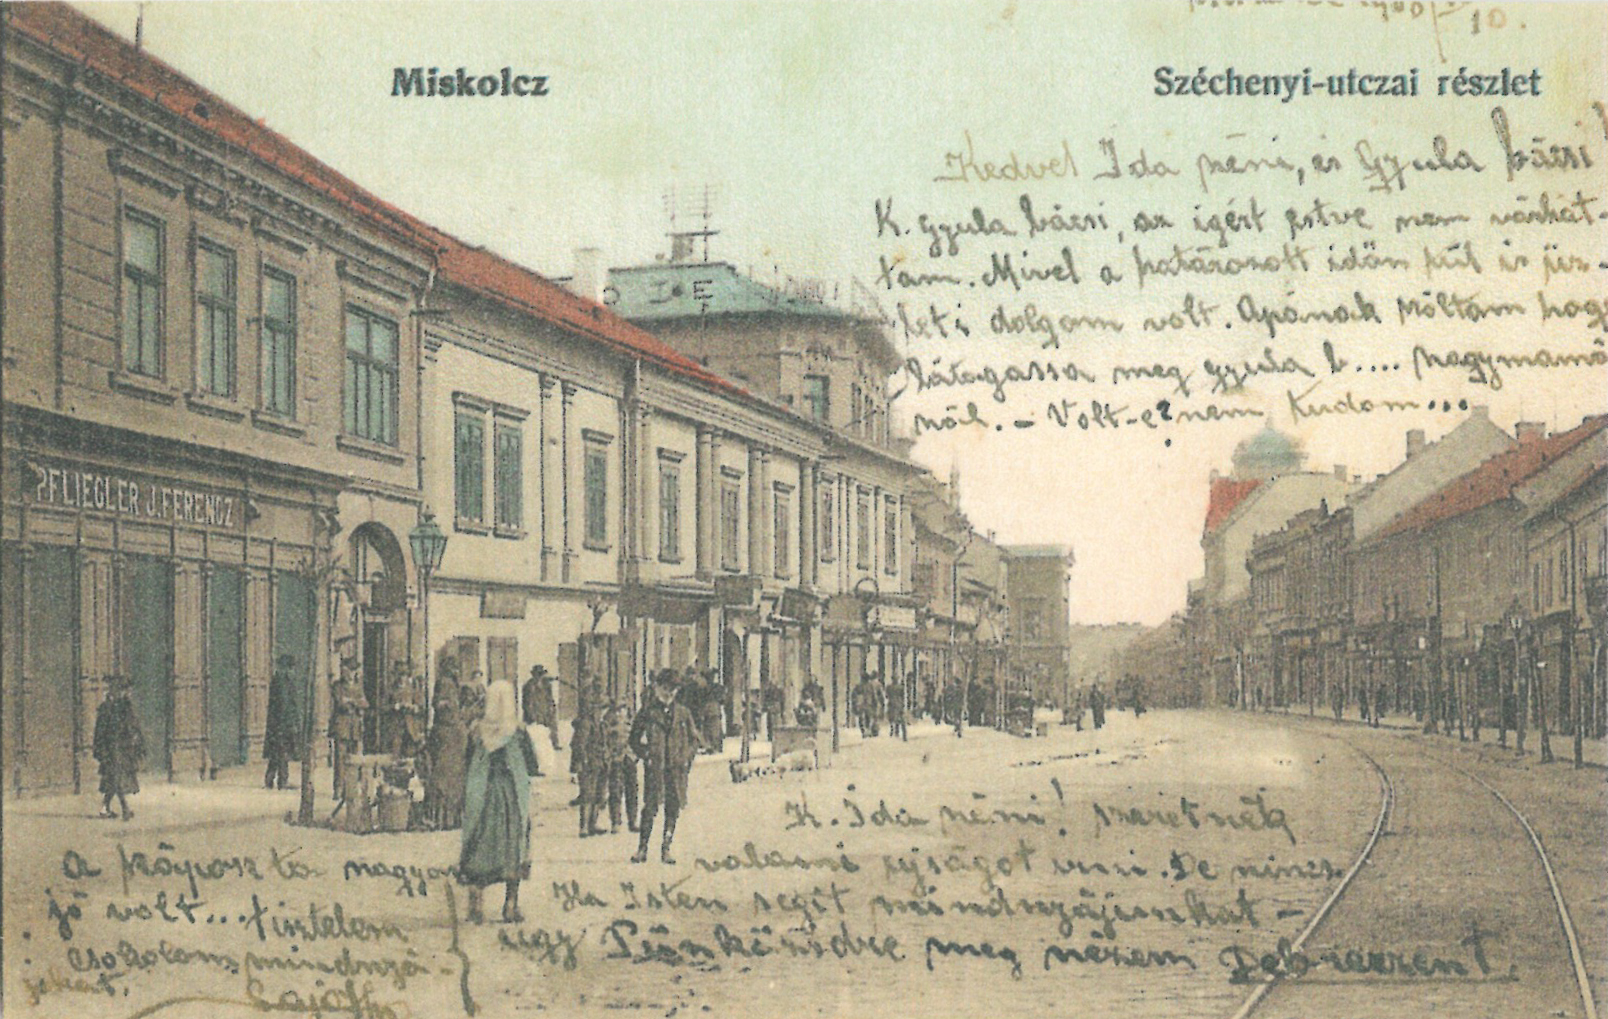 1900
10.
Miskolcz
Széchenyi-utczai részlet
Kedvel Ida néni, és Gyula bácsi!
K. Gyula bácsi, az igért estve nem várhat-
tam. Mivel a határozott időn túl is üz-
leti dolgom volt. Apának szóltam hogy
látogassa meg gyula b.... nagymamá
nál. - Volt-e? nem tudom...
PFLIEGLER J. FERENCZ
K. Ida néni! szeretnék
valami ujságot irni. De nincs.
Ha Isten segit mindnyájunkat -
ugy Pünkösdre meg nézem Debreczent.
A káposzta nagyon
jó volt... tisztelem
csokolom mindnyá-
jukat.
Lajos